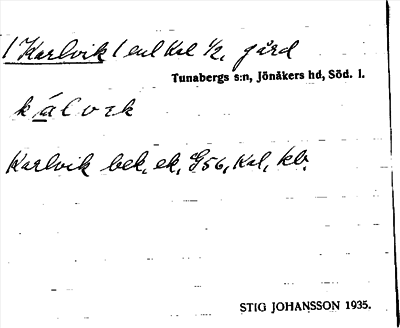 / Karlvik / enl Kal ½, gård
Tunabergs s:n, Jönåkers hd, Söd. l.
kálvık
Karlvik bek, ek, G56, Kal, kb.
STIG JOHANSSON 1935.